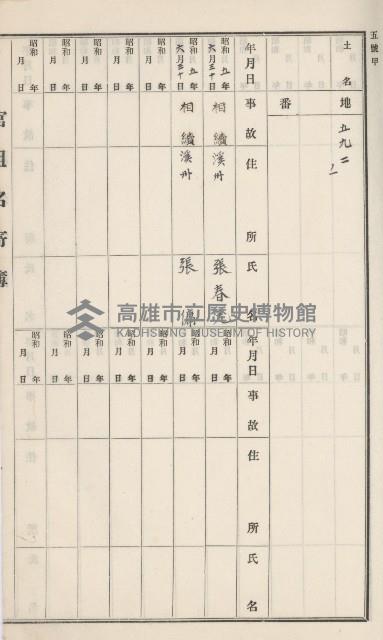 五號甲
土名
地番
五九二
ノ一
年月日
事故
住所
氏名
年月日
事故
住所
氏名
昭和五年六月三十日
相續
溪州
張春
昭和 年 月 日
昭和五年六月三十日
相續
溪州
張
昭和 年 月 日
昭和 年 月 日
昭和 年 月 日
昭和 年 月 日
昭和 年 月 日
昭和 年 月 日
昭和 年 月 日
昭和 年 月 日
昭和 年 月 日
官租名寄簿
高雄市立歷史博物館
KAOHSIUNG MUSEUM OF HISTORY